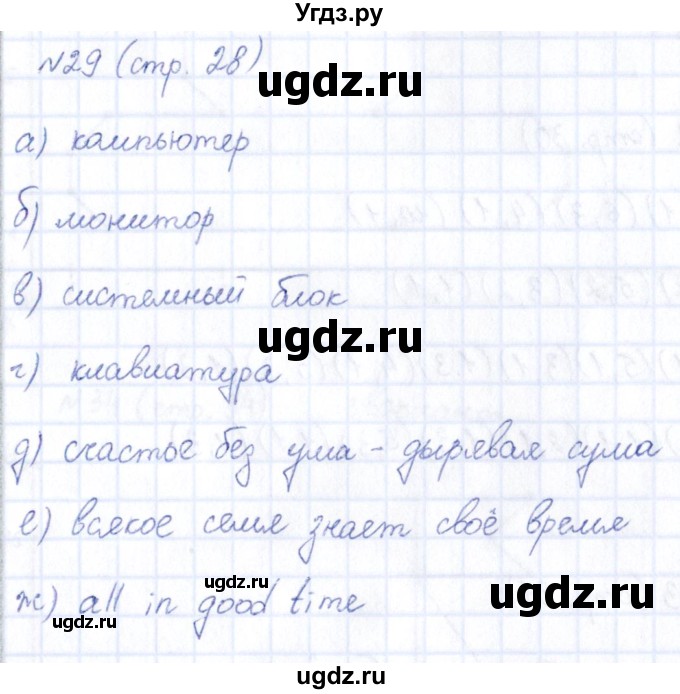 Угдз.ру
№29 (стр. 28)
ugdz.ru
а) компьютер
б) монитор
ugdz.ru
в) системный блок
ugdz.ru
г) клавиатура
д) счастье без ума - дырявая сума
ugdz.ru
е) всякое семя знает своё время
ugdz.ru
ugdz.ru
ж) all in good time
ugdz.ru
Угдз.ру